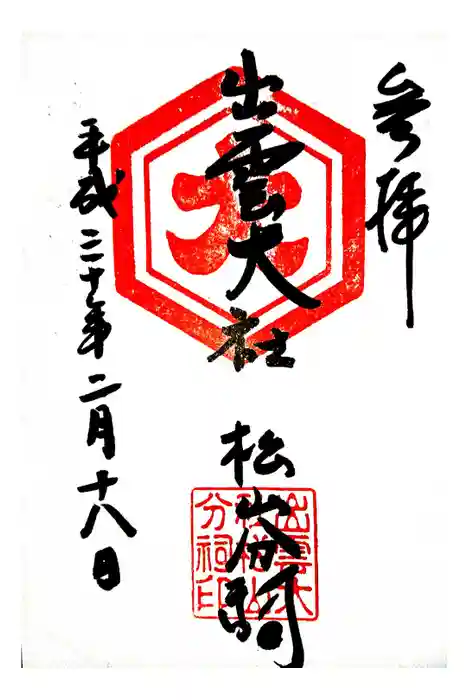 参拝
出雲大社
松山分祠
平成二十年二月十八日
大
出雲大
社松山
分祠印